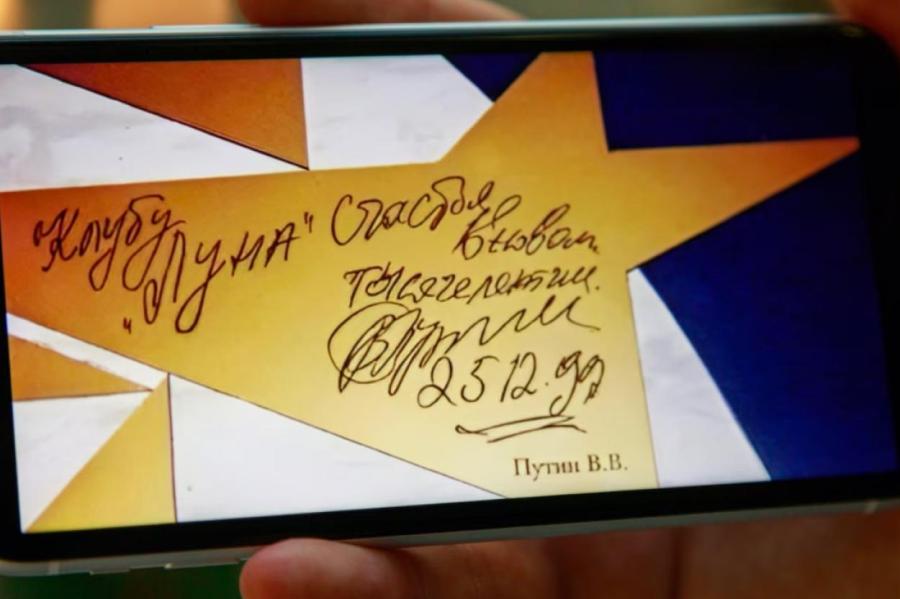 "Клубу
"Луна"
Счастья
в новом
тысячелетии.
25 12. 99
Путин В.В.